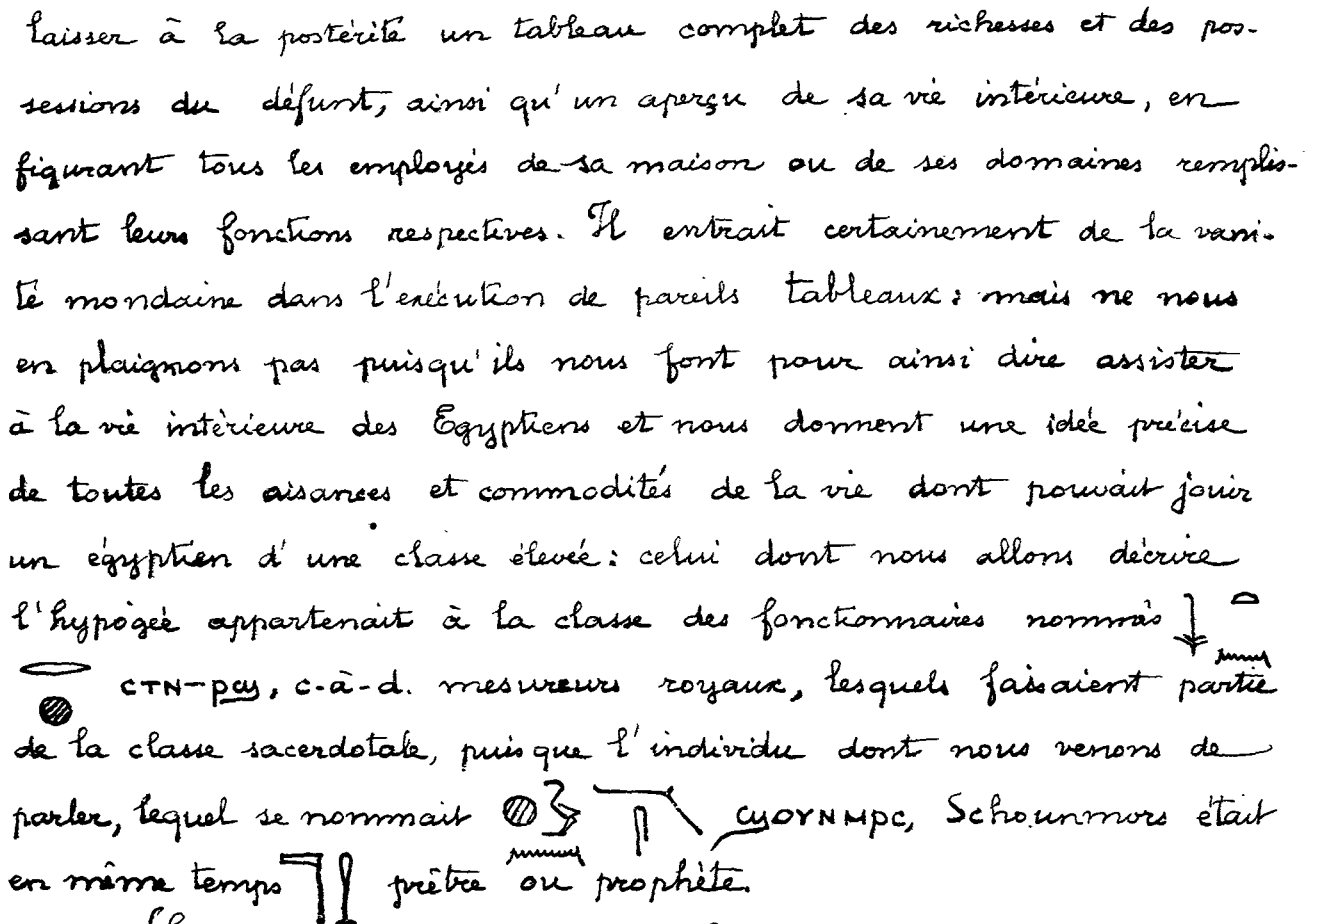 laisser à la postérité un tableau complet des richesses et des pos-
sessions du défunt, ainsi qu'un aperçu de sa vie intérieure, en
figurant tous les employés de sa maison ou de ses domaines remplis-
sant leurs fonctions respectives. Il entrait certainement de la vani-
té mondaine dans l'exécution de pareils tableaux: mais ne nous
en plaignons pas puisqu'ils nous font pour ainsi dire assister
à la vie intérieure des Egyptiens et nous donnent une idée précise
de toutes les aisances et commodités de la vie dont pouvait jouir
un égyptien d'une classe élevée: celui dont nous allons décrire
l'hypogée appartenait à la classe des fonctionnaires nommés 𓇓 𓏏 𓈖
𓂋 𓐍 ⲥⲧⲛ-ⲣϣ, c-à-d. mesureurs royaux, lesquels faisaient partie
de la classe sacerdotale, puisque l'individu dont nous venons de
parler, lequel se nommait ϣⲟⲩⲛⲙⲣⲥ, Schounmors était
en même temps 𓊹𓍛 prêtre ou prophète.